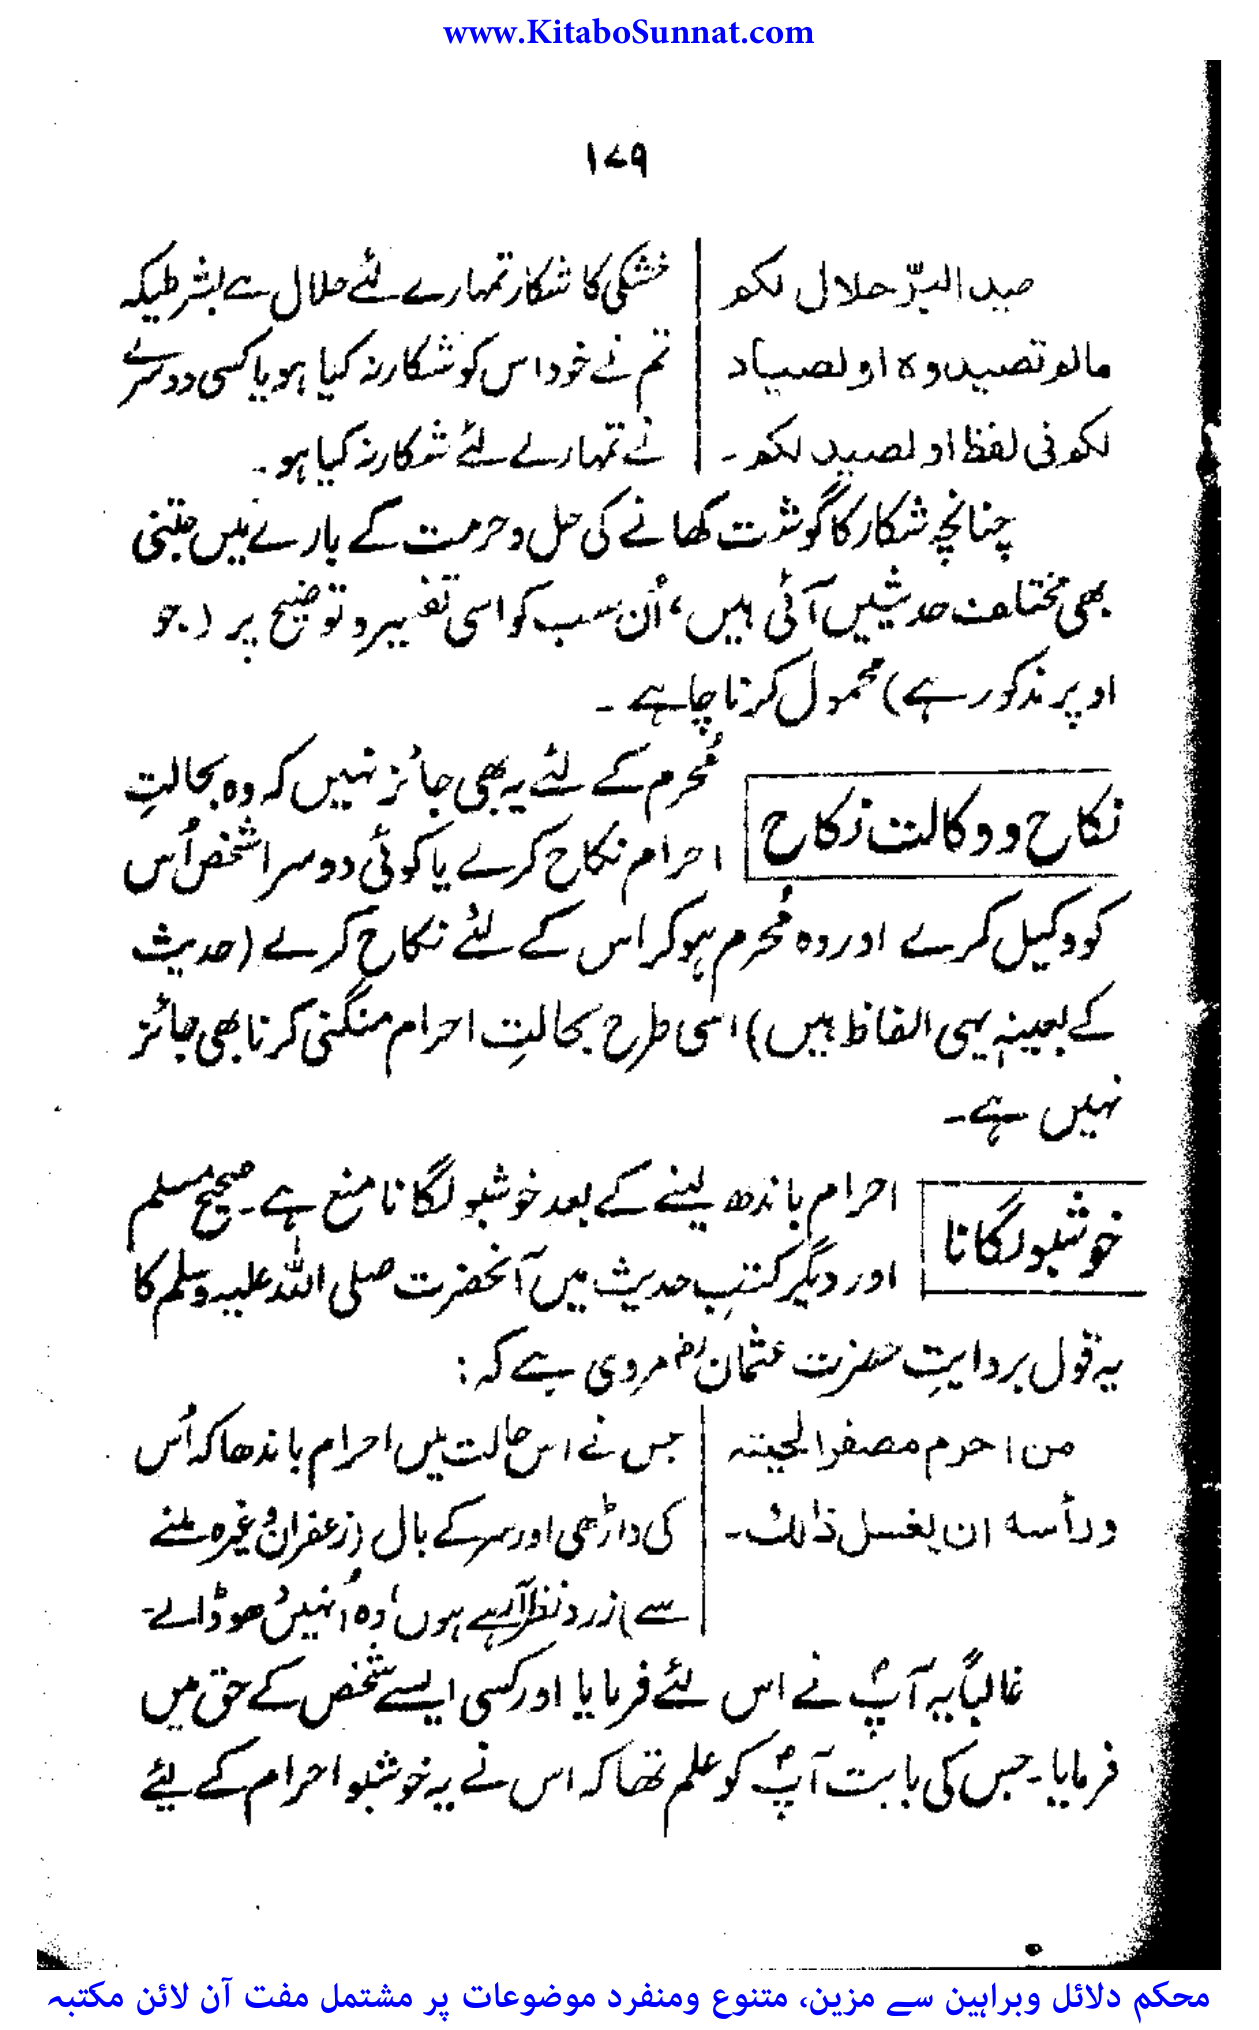 www.KitaboSunnat.com
۱۷۹
صید البرّ حلال لکم
مالم تصیدوہ او لصیاد
لکم فی لفظ او لصید لکم۔
خشکی کا شکار تمہارے لئے حلال ہے بشرطیکہ
تم نے خود اس کو شکار نہ کیا ہو یا کسی دوسرے
نے تمہارے لئے شکار نہ کیا ہو۔
چنانچہ شکار کا گوشت کھانے کی حل و حرمت کے بارے میں جتنی
بھی مختلف حدیثیں آئی ہیں، اُن سب کو اسی تفسیر و توضیح پر (جو
اوپر مذکور ہے) محمول کرنا چاہیے۔
نکاح و وکالت نکاح
مُحرم کے لئے یہ بھی جائز نہیں کہ وہ بحالتِ
احرام نکاح کرے یا کوئی دوسرا شخص اُس
کو وکیل کرے اور وہ مُحرم ہو کر اس کے لئے نکاح کرے (حدیث
کے بعینہٖ یہی الفاظ ہیں) اسی طرح بحالتِ احرام منگنی کرنا بھی جائز
نہیں ہے۔
خوشبو لگانا
احرام باندھ لینے کے بعد خوشبو لگانا منع ہے۔ صحیح مسلم
اور دیگر کتبِ حدیث میں آنحضرت صلی اللہ علیہ وسلم کا
یہ قول بروایتِ حضرت عثمان رضؓ مروی ہے کہ:
من احرم مصفر الحیتہ
و رأسہ ان یغسل ذالک۔
جس نے اس حالت میں احرام باندھا کہ اُس
کی داڑھی اور سر کے بال (زعفران وغیرہ ملنے
سے) زرد نظر آ رہے ہوں، وہ اُنہیں دھو ڈالے۔
غالباً یہ آپؐ نے اس لئے فرمایا اور کسی ایسے شخص کے حق میں
فرمایا۔ جس کی بابت آپؐ کو علم تھا کہ اس نے یہ خوشبو احرام کے لیئے
محکم دلائل وبراہین سے مزین، متنوع ومنفرد موضوعات پر مشتمل مفت آن لائن مکتبہ